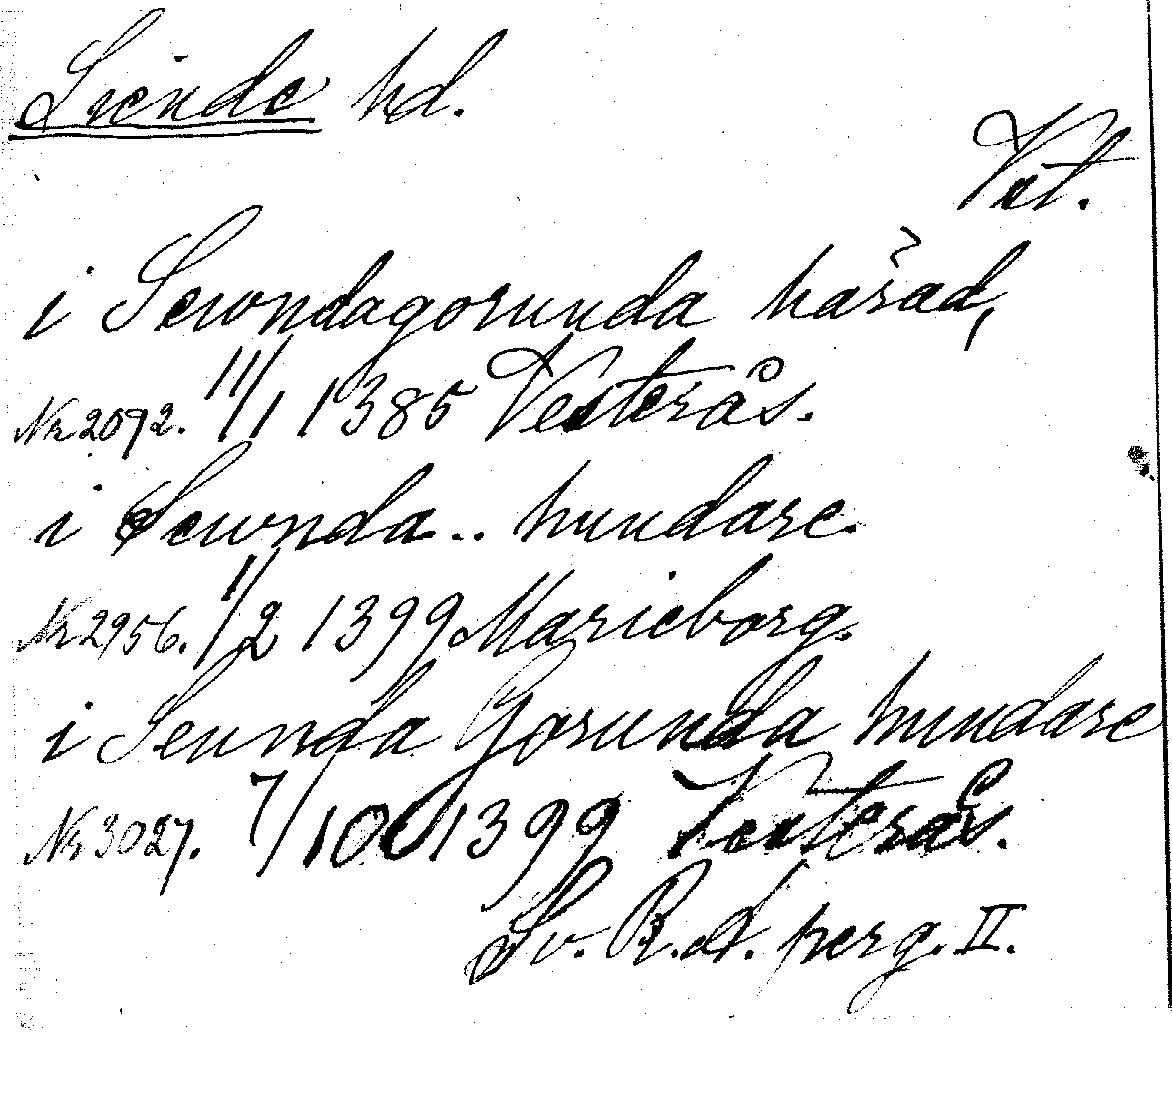 Siende hd.
Vst.
i Sewndagorunda hårad,
Nr 2092. 11/1 1385 Vesterås.
i Sewnda.. hundare.
Nr 2956. 11/2 1399 Marieborg.
i Seunda Gorunda hundare
Nr 3027. 7/10 1399 Vesterås.
Sv. R. A. perg. II.